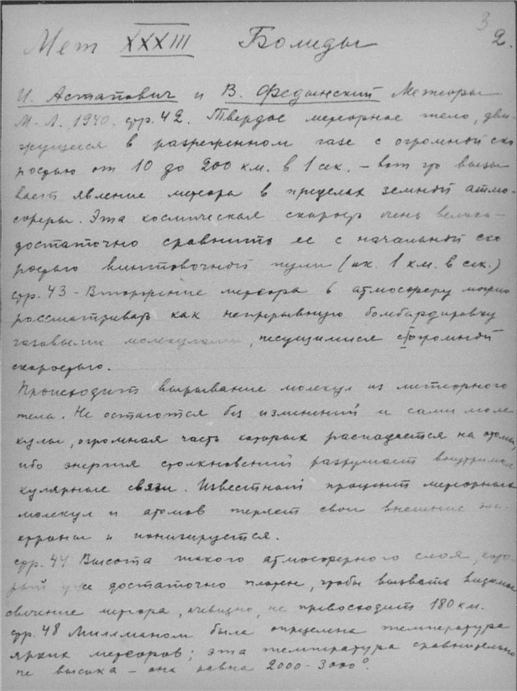 3
Мет XXXIII Болиды 2.
И. Астапович и В. Федынский Метеоры
М-Л. 1940. стр. 42. Твердое метеорное тело, дви-
жущееся в разреженном газе с огромной ско
ростью от 10 до 200 км. в 1 сек. – вот что вызы
вает явление метеора в пределах земной атмо-
сферы. Эта космическая скорость очень велика –
достаточно сравнить ее с начальной ско
ростью винтовочной пули (ок. 1 км. в сек.)
стр. 43 - Вторжение метеора в атмосферу можно
рассматривать как непрерывную бомбардировку
газовыми молекулами, несущимися с огромной
скоростью.
Происходит вырывание молекул из метеорного
тела. Не остаются без изменений и сами моле
кулы, огромная часть которых распадается на атомы,
ибо энергия столкновений разрушает внутримоле
кулярные связи. Известный процент метеорных
молекул и атомов теряет свои внешние эле
ктроны и ионизируется.
стр. 44 Высота такого атмосферного слоя, кото
рый уже достаточно плотен, чтобы вызвать видимое
свечение метеора, очевидно, не превосходит 180 км.
стр. 48 Миллманом была определена температура
ярких метеоров; эта температура сравнительно
не высока – она равна 2000-3000°.